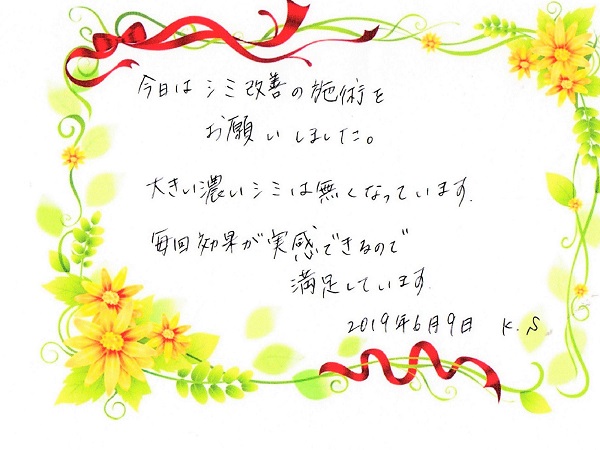 今日はシミ改善の施術を
お願いしました。
大きい濃いシミは無くなっています.
毎回効果が実感できるので
満足しています.
2019年6月9日 K.S